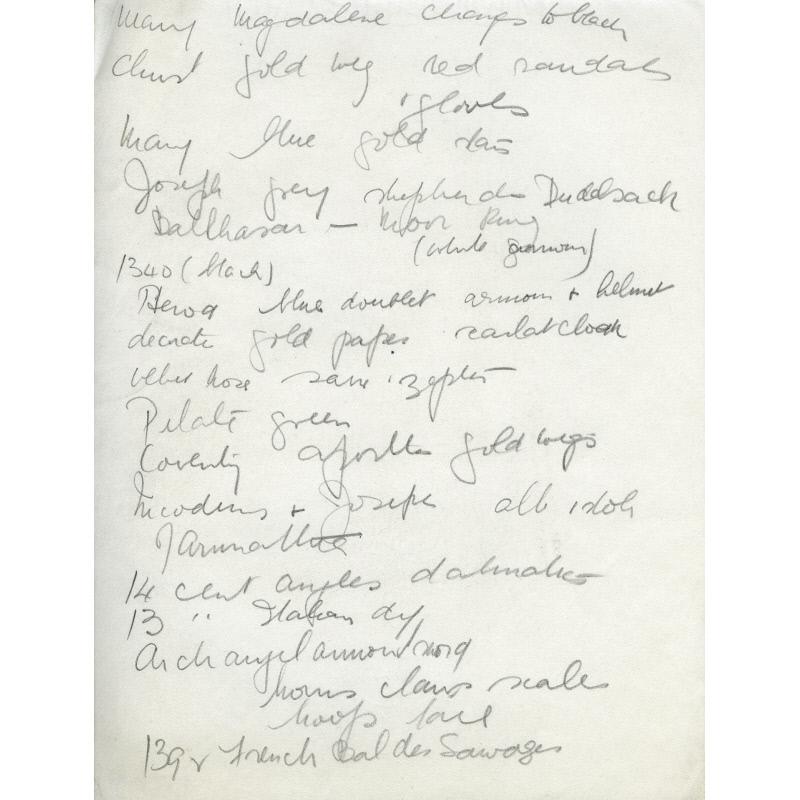 Mary Magdalene changes to black
Christ gold wig red sandals
+ gloves
Mary blue gold stars
Joseph grey shepherds Dudelsack
Balthasar — Moor King
(white
1340 (black)
Herod blue doublet armour + helmet
gold paper scarlet cloak
hose same
Pilate green
Coventry apostles gold wigs
Nicodemus + Joseph alb stole
14 cent angles dalmatics
13 " Italian
Archangel armour sword
horns claws scales
hoofs tail
139 French Bal des Sauvages